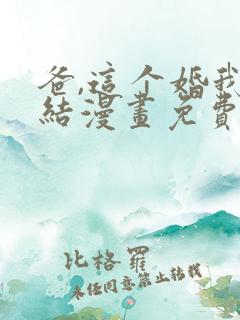 爸,這个婚我
結漫畫免費
比格羅
未经同意禁止转载